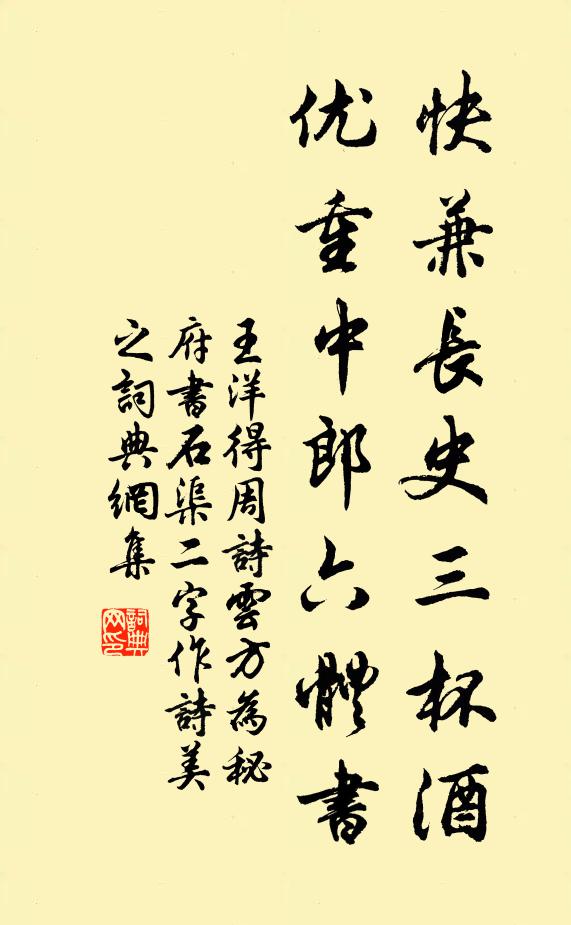 快兼長史三杯酒
优重中郎六體書
王洋得周詩雲方為秘
府書石渠二字作詩美
之詞典網集
詞典網印